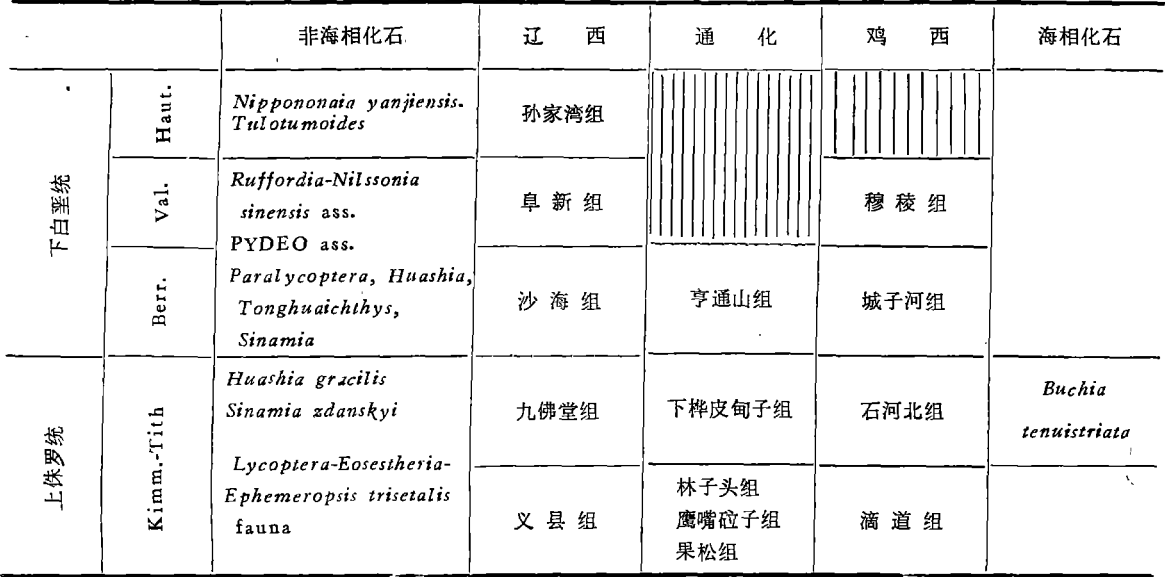 非海相化石 辽 西 通 化 鸡 西 海相化石
下白垩统
Haut.
Nippononaia yanjiensis.
Tulotumoides
孙家湾组
Val.
Ruffordia-Nilssonia
sinensis ass.
PYDEO ass.
阜 新 组
穆 稜 组
Berr.
Paralycoptera, Huashia,
Tonghuaichthys,
Sinamia
沙 海 组
亨通山组
城子河组
上侏罗统
Kimm.-Tith
Huashia gracilis
Sinamia zdanskyi
九佛堂组
下桦皮甸子组
石河北组
Buchia
tenuistriata
Lycoptera-Eosestheria-
Ephemeropsis trisetalis
fauna
义 县 组
林子头组
鹰嘴砬子组
果松组
滴 道 组